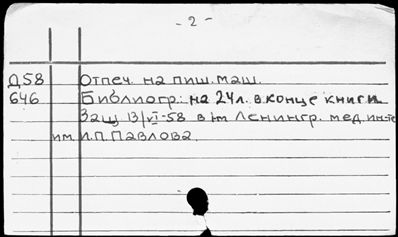 - 2 -
Д58 Отпеч. на пиш. маш.
646 Библиогр: на 24 л. в конце книги
Защ 13/VI-58 в Ленингр. мед. ин-те
им. И.П. Павлова.